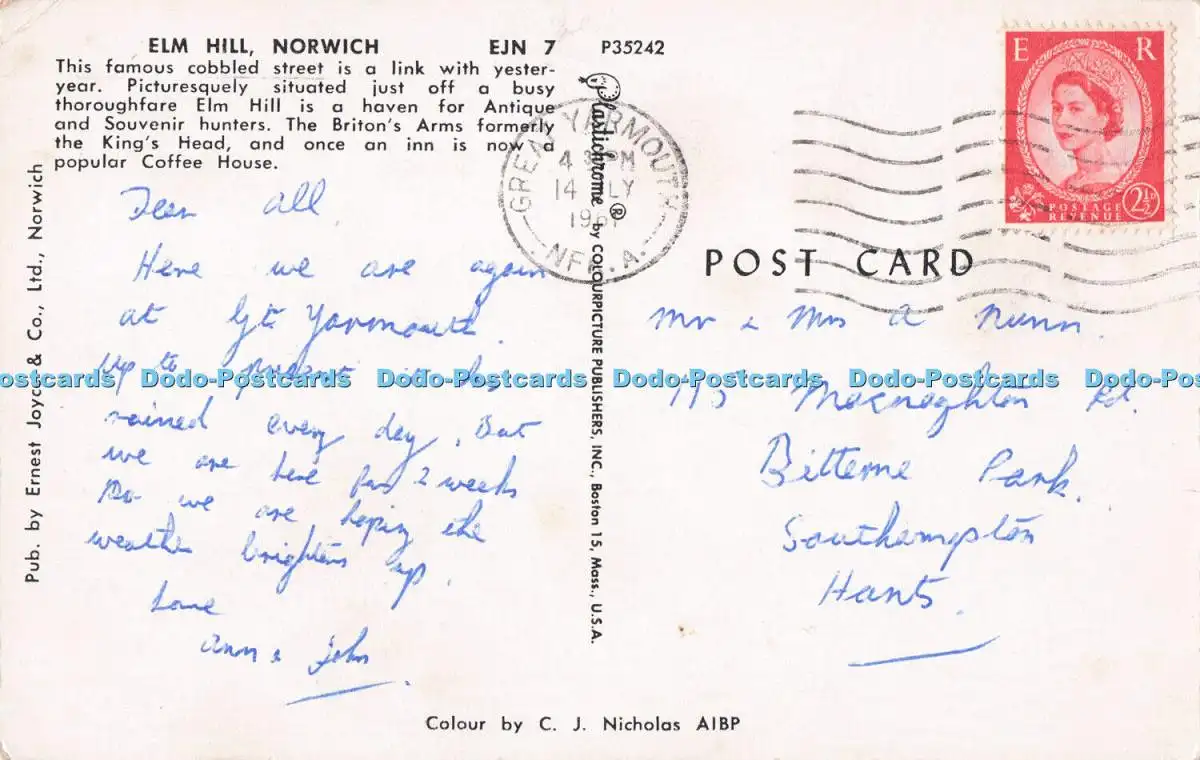 ELM HILL, NORWICH EJN 7 P35242
This famous cobbled street is a link with yester-
year. Picturesquely situated just off a busy
thoroughfare Elm Hill is a haven for Antique
and Souvenir hunters. The Briton's Arms formerly
the King's Head, and once an inn is now a
popular Coffee House.
Dear all
Here we are again
at Gt Yarmouth.
Up to present it has
rained every day, But
we are here for 2 weeks
so we are hoping the
weather brightens up.
Love
Ann & John.
Pub. by Ernest Joyce & Co., Ltd., Norwich
Plastichrome ® by COLOURPICTURE PUBLISHERS, INC., Boston 15, Mass., U.S.A.
GREAT YARMOUTH
PM
14 JLY
196
NF A.
E R
POSTAGE
REVENUE
2½D
POST CARD
Mr & Mrs A Nunn.
Macnaghten Rd.
Bitterne Park.
Southampton
Hants.
Colour by C. J. Nicholas AIBP
Dodo-Postcards Dodo-Postcards Dodo-Postcards Dodo-Postcards Dodo-Postcards